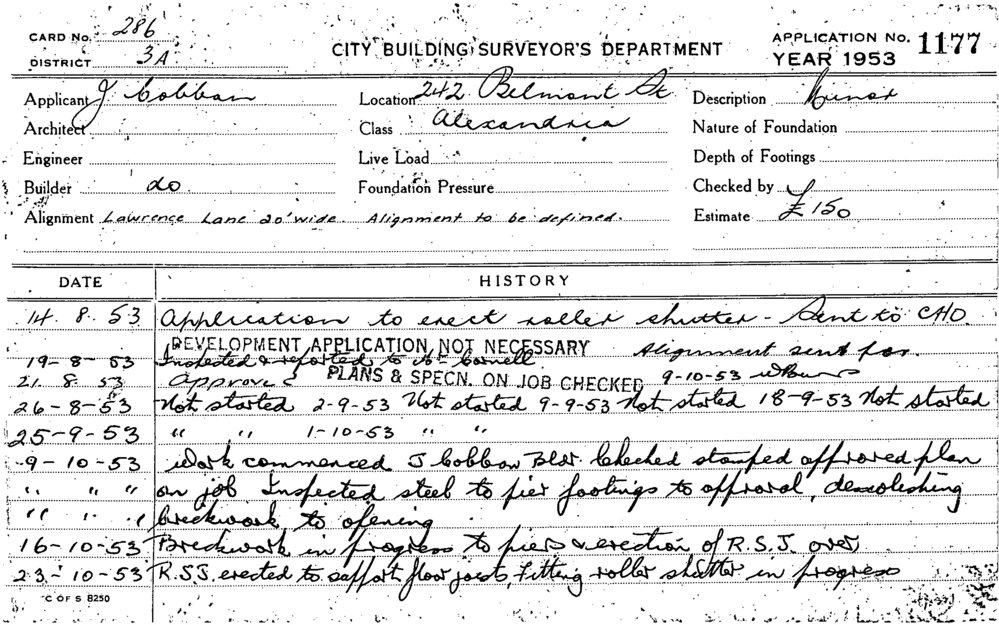 CARD No. 286
DISTRICT 3A
CITY BUILDING SURVEYOR'S DEPARTMENT
APPLICATION No. 1177
YEAR 1953
Applicant J Cobban
Location 242 Belmont St
Description Minor
Architect
Class Alexandria
Nature of Foundation
Engineer
Live Load
Depth of Footings
Builder do
Foundation Pressure
Checked by
Alignment Lawrence Lane 20' wide. Alignment to be defined.
Estimate £150
DATE HISTORY
14. 8. 53 Application to erect roller shutter - Sent to CHO
DEVELOPMENT APPLICATION NOT NECESSARY Alignment sent for.
19-8-53 Inspected & reported to Mr
21. 8. 53 Approved PLANS & SPECN. ON JOB CHECKED 9-10-53
26-8-53 Not started 2-9-53 Not started 9-9-53 Not started 18-9-53 Not started
25-9-53 " " 1-10-53 " "
9-10-53 Work commenced J Cobban Bldr. Checked stamped approved plan
" " " on job. Inspected steel to pier footings to approval, demolishing
" " " brickwork to opening
16-10-53 Brickwork in progress to piers & erection of R.S.J. over
23-10-53 R.S.J. erected to support floor joists, Fitting roller shutter in progress
C OF S 8250